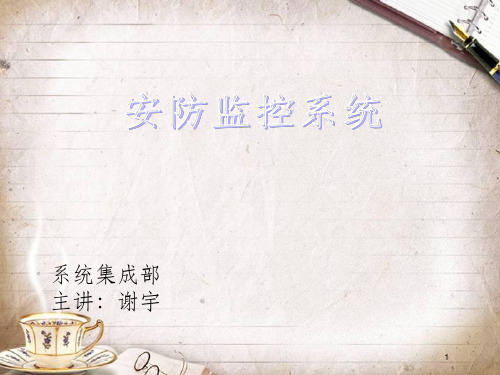 安防监控系统
系统集成部
主讲：谢宇
1